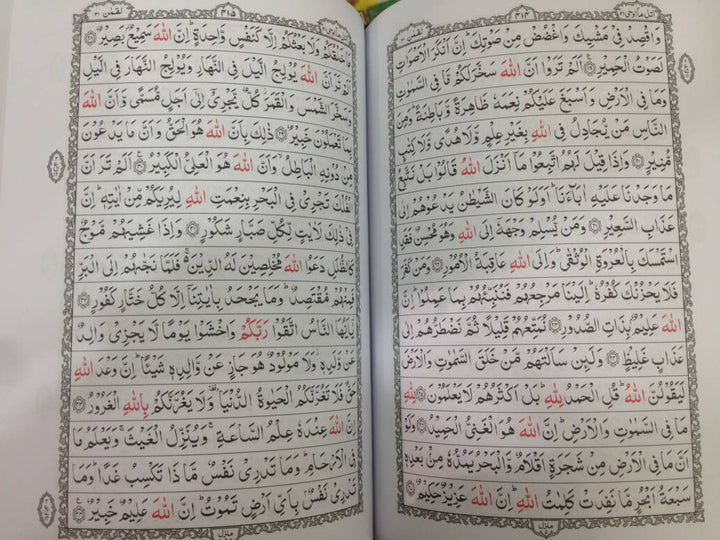 اتل ما اوحی ٢١ ٤١٤ لقمٰن ٣١
وَاقْصِدْ فِيْ مَشْيِكَ وَاغْضُضْ مِنْ صَوْتِكَ ؕ اِنَّ اَنْكَرَ الْاَصْوَاتِ
لَصَوْتُ الْحَمِيْرِ ۝١٩ اَلَمْ تَرَوْا اَنَّ اللهَ سَخَّرَ لَكُمْ مَّا فِي السَّمٰوٰتِ
وَمَا فِي الْاَرْضِ وَاَسْبَغَ عَلَيْكُمْ نِعَمَهٗ ظَاهِرَةً وَّبَاطِنَةً ؕ وَمِنَ
النَّاسِ مَنْ يُّجَادِلُ فِي اللهِ بِغَيْرِ عِلْمٍ وَّلَا هُدًى وَّلَا كِتٰبٍ
مُّنِيْرٍ ۝٢٠ وَاِذَا قِيْلَ لَهُمُ اتَّبِعُوْا مَاۤ اَنْزَلَ اللهُ قَالُوْا بَلْ نَتَّبِعُ
مَا وَجَدْنَا عَلَيْهِ اٰبَآءَنَا ؕ اَوَلَوْ كَانَ الشَّيْطٰنُ يَدْعُوْهُمْ اِلٰى
عَذَابِ السَّعِيْرِ ۝٢١ وَمَنْ يُّسْلِمْ وَجْهَهٗۤ اِلَى اللهِ وَهُوَ مُحْسِنٌ فَقَدِ
اسْتَمْسَكَ بِالْعُرْوَةِ الْوُثْقٰى ؕ وَاِلَى اللهِ عَاقِبَةُ الْاُمُوْرِ ۝٢٢ وَمَنْ كَفَرَ
فَلَا يَحْزُنْكَ كُفْرُهٗ ؕ اِلَيْنَا مَرْجِعُهُمْ فَنُنَبِّئُهُمْ بِمَا عَمِلُوْا ؕ اِنَّ
اللهَ عَلِيْمٌۢ بِذَاتِ الصُّدُوْرِ ۝٢٣ نُمَتِّعُهُمْ قَلِيْلًا ثُمَّ نَضْطَرُّهُمْ اِلٰى
عَذَابٍ غَلِيْظٍ ۝٢٤ وَلَئِنْ سَاَلْتَهُمْ مَّنْ خَلَقَ السَّمٰوٰتِ وَالْاَرْضَ
لَيَقُوْلُنَّ اللهُ ؕ قُلِ الْحَمْدُ لِلّٰهِ ؕ بَلْ اَكْثَرُهُمْ لَا يَعْلَمُوْنَ ۝٢٥ لِلّٰهِ
مَا فِي السَّمٰوٰتِ وَالْاَرْضِ ؕ اِنَّ اللهَ هُوَ الْغَنِيُّ الْحَمِيْدُ ۝٢٦ وَلَوْ
اَنَّ مَا فِي الْاَرْضِ مِنْ شَجَرَةٍ اَقْلَامٌ وَّالْبَحْرُ يَمُدُّهٗ مِنْۢ بَعْدِهٖ
سَبْعَةُ اَبْحُرٍ مَّا نَفِدَتْ كَلِمٰتُ اللهِ ؕ اِنَّ اللهَ عَزِيْزٌ حَكِيْمٌ ۝٢٧
منزل
لقمٰن ٣١ ٤١٥ اتل ما اوحی ٢١
مَا خَلْقُكُمْ وَلَا بَعْثُكُمْ اِلَّا كَنَفْسٍ وَّاحِدَةٍ ؕ اِنَّ اللهَ سَمِيْعٌۢ بَصِيْرٌ ۝٢٨
اَلَمْ تَرَ اَنَّ اللهَ يُوْلِجُ الَّيْلَ فِي النَّهَارِ وَيُوْلِجُ النَّهَارَ فِي الَّيْلِ
وَسَخَّرَ الشَّمْسَ وَالْقَمَرَ ؗ كُلٌّ يَّجْرِيْۤ اِلٰۤى اَجَلٍ مُّسَمًّى وَّاَنَّ اللهَ
بِمَا تَعْمَلُوْنَ خَبِيْرٌ ۝٢٩ ذٰلِكَ بِاَنَّ اللهَ هُوَ الْحَقُّ وَاَنَّ مَا يَدْعُوْنَ
مِنْ دُوْنِهِ الْبَاطِلُ ۙ وَاَنَّ اللهَ هُوَ الْعَلِيُّ الْكَبِيْرُ ۝٣٠ اَلَمْ تَرَ اَنَّ
الْفُلْكَ تَجْرِيْ فِي الْبَحْرِ بِنِعْمَتِ اللهِ لِيُرِيَكُمْ مِّنْ اٰيٰتِهٖ ؕ اِنَّ
فِيْ ذٰلِكَ لَاٰيٰتٍ لِّكُلِّ صَبَّارٍ شَكُوْرٍ ۝٣١ وَاِذَا غَشِيَهُمْ مَّوْجٌ
كَالظُّلَلِ دَعَوُا اللهَ مُخْلِصِيْنَ لَهُ الدِّيْنَ ۚ فَلَمَّا نَجّٰىهُمْ اِلَى الْبَرِّ
فَمِنْهُمْ مُّقْتَصِدٌ ؕ وَمَا يَجْحَدُ بِاٰيٰتِنَاۤ اِلَّا كُلُّ خَتَّارٍ كَفُوْرٍ ۝٣٢
يٰۤاَيُّهَا النَّاسُ اتَّقُوْا رَبَّكُمْ وَاخْشَوْا يَوْمًا لَّا يَجْزِيْ وَالِدٌ
عَنْ وَّلَدِهٖ ؗ وَلَا مَوْلُوْدٌ هُوَ جَازٍ عَنْ وَّالِدِهٖ شَيْـًٔا ؕ اِنَّ وَعْدَ اللهِ
حَقٌّ فَلَا تَغُرَّنَّكُمُ الْحَيٰوةُ الدُّنْيَا ۥ وَلَا يَغُرَّنَّكُمْ بِاللهِ الْغَرُوْرُ ۝٣٣
اِنَّ اللهَ عِنْدَهٗ عِلْمُ السَّاعَةِ ۚ وَيُنَزِّلُ الْغَيْثَ ۚ وَيَعْلَمُ مَا
فِي الْاَرْحَامِ ؕ وَمَا تَدْرِيْ نَفْسٌ مَّا ذَا تَكْسِبُ غَدًا ؕ وَمَا
تَدْرِيْ نَفْسٌۢ بِاَيِّ اَرْضٍ تَمُوْتُ ؕ اِنَّ اللهَ عَلِيْمٌ خَبِيْرٌ ۝٣٤
منزل